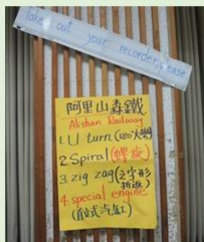 Take out your recorder, please
阿里山森鐵
Alishan Railway
1. U turn (180°大彎)
2. Spiral (螺旋)
3. zig zag (之字形
折返)
4. special engine
(直立式汽缸)